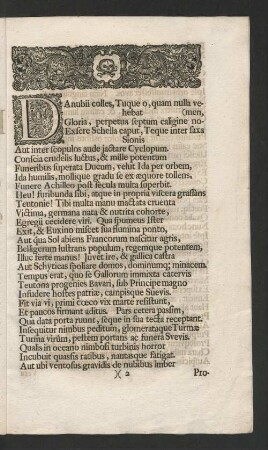 DAnubii colles, Tuque o, quam nulla ve-
hebat (men,
Gloria, perpetua septum caligine no-
Exsere Schella caput, Teque inter saxa
Sionis
Aut inter scopulos aude jactare Cyclopum.
Conscia crudelis luctus, & mille potentum
Funeribus superata Ducum, velut Ida per orbem,
Ida humilis, mollique gradu se ex æquore tollens,
Funere Achilleo post secula multa superbit.
Heu! funibunda sibi, atque in propria viscera grassans
Teutonie! Tibi multa manu mactata cruenta
Victima, germana nata & nutrita cohorte,
Egregii cecidere viri. Qua spumeus Ister
Exit, & Euxino miscet sua flumina ponto,
Aut qua Sol abiens Francorum nascitur agris,
Belligerum lustrans populum, regemque potentem,
Illuc ferte manus! Juvet ire, & gallica castra
Aut Schyticas spoliare domos, dominumq; minacem.
Tempus erat, quo se Gallorum immixta catervis
Teutona progenies Bavari, sub Principe magno
Insudere hostes patriæ, campisque Suevis.
Fit via vi, primi cœco vix marte resistunt,
Et paucos firmant aditus. Pars cetera passim,
Qua data porta ruunt, seque in sua tecta receptant.
Insequitur nimbus peditum, glomerataque Turmæ
Turma virûm, pestem portans ac funera Svevis.
Qualis in oceano nimbosi turbinis horror
Incubuit quassis ratibus, nautasque fatigat.
Aut ubi ventosus gravidis de nubibus imber
)( 2 Pro-